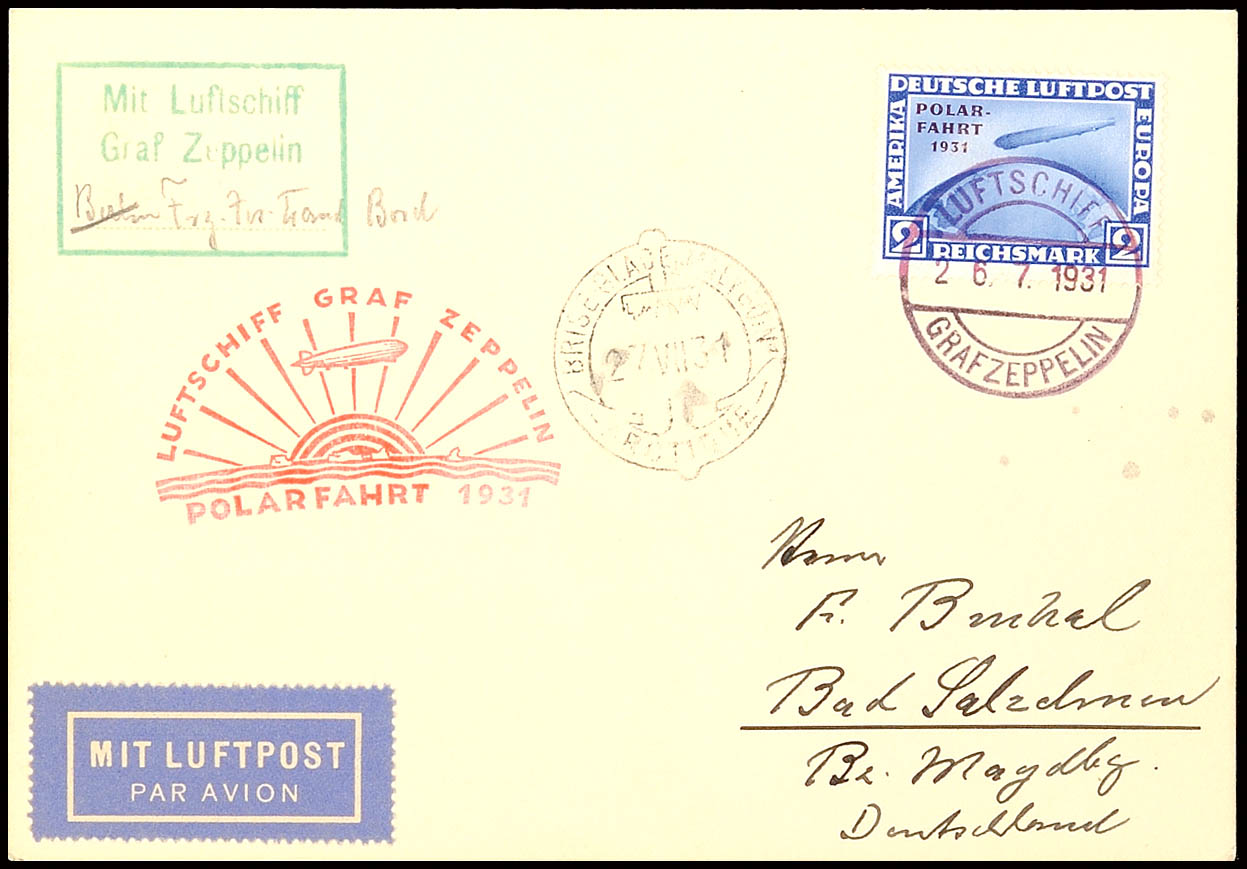 Mit Luftschiff
Graf Zeppelin
Berlin Bord
DEUTSCHE LUFTPOST
AMERIKA
EUROPA
POLAR-
FAHRT
1931
2 REICHSMARK 2
LUFTSCHIFF
26.7.1931
GRAF ZEPPELIN
LUFTSCHIFF GRAF ZEPPELIN
POLARFAHRT 1931
27 VII 31
Herrn
Bad Salzelmen
Bz. Magdbg.
Deutschland
MIT LUFTPOST
PAR AVION